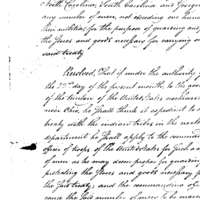 North Carolina, South Carolina and Georgia
any number of men, not exceeding one hun
then militia for the purpose of guarding and
the stores and goods necessary for carrying on
said treaty
Resolved, That if under the authority
the 22nd day of the present month, to the go
of the territory of the United States northwest
river Ohio, he shall think it
treaty with the indian tribes in the north
department he shall apply to the comman
officer of troops of the United States for such a
of men as he may deem proper for guarding
protecting the stores and goods necessary
the said treaty; and the commanding offi
cause the said number of men to be